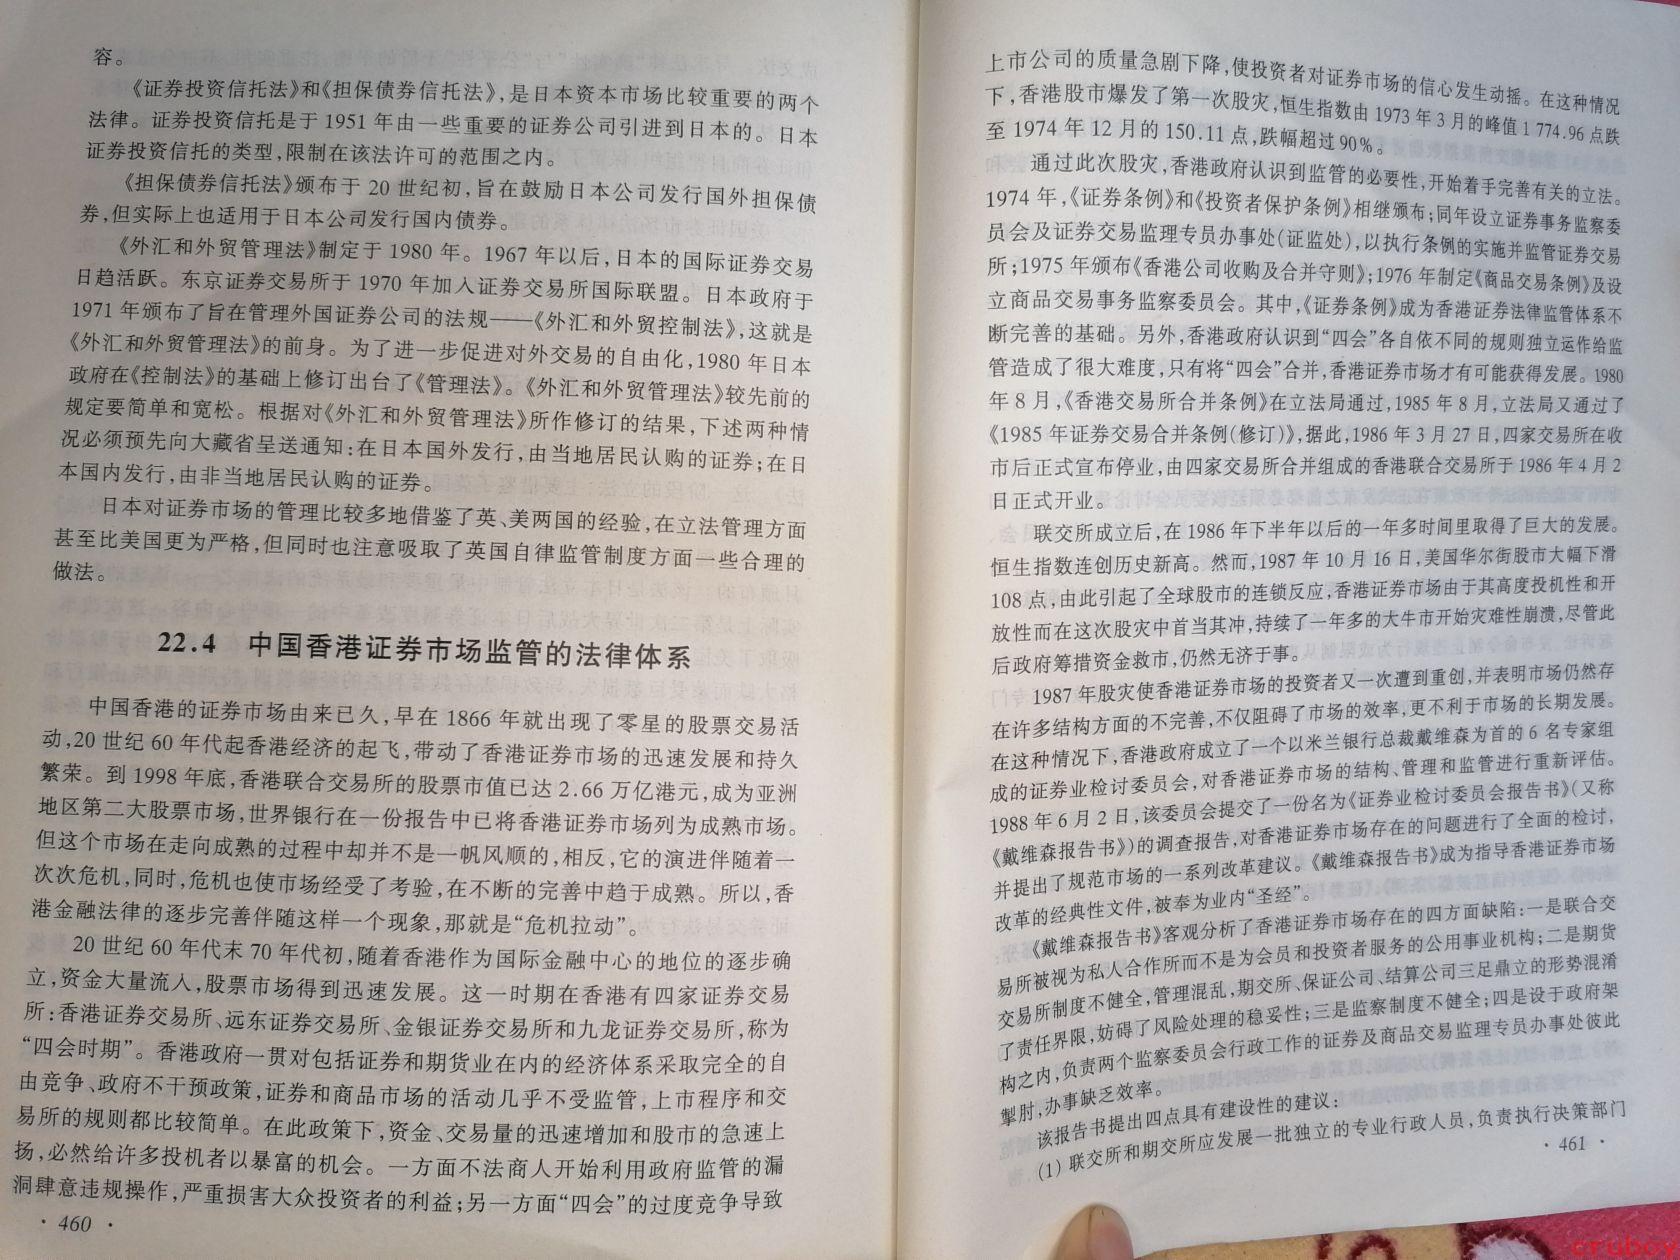 容。
《证券投资信托法》和《担保债券信托法》,是日本资本市场比较重要的两个
法律。证券投资信托是于 1951 年由一些重要的证券公司引进到日本的。日本
证券投资信托的类型,限制在该法许可的范围之内。
《担保债券信托法》颁布于 20 世纪初,旨在鼓励日本公司发行国外担保债
券,但实际上也适用于日本公司发行国内债券。
《外汇和外贸管理法》制定于 1980 年。1967 年以后,日本的国际证券交易
日趋活跃。东京证券交易所于 1970 年加入证券交易所国际联盟。日本政府于
1971 年颁布了旨在管理外国证券公司的法规——《外汇和外贸控制法》,这就是
《外汇和外贸管理法》的前身。为了进一步促进对外交易的自由化,1980 年日本
政府在《控制法》的基础上修订出台了《管理法》。《外汇和外贸管理法》较先前的
规定要简单和宽松。根据对《外汇和外贸管理法》所作修订的结果,下述两种情
况必须预先向大藏省呈送通知:在日本国外发行,由当地居民认购的证券;在日
本国内发行,由非当地居民认购的证券。
日本对证券市场的管理比较多地借鉴了英、美两国的经验,在立法管理方面
甚至比美国更为严格,但同时也注意吸取了英国自律监管制度方面一些合理的
做法。
22.4 中国香港证券市场监管的法律体系
中国香港的证券市场由来已久,早在 1866 年就出现了零星的股票交易活
动,20 世纪 60 年代起香港经济的起飞,带动了香港证券市场的迅速发展和持久
繁荣。到 1998 年底,香港联合交易所的股票市值已达 2.66 万亿港元,成为亚洲
地区第二大股票市场,世界银行在一份报告中已将香港证券市场列为成熟市场。
但这个市场在走向成熟的过程中却并不是一帆风顺的,相反,它的演进伴随着一
次次危机,同时,危机也使市场经受了考验,在不断的完善中趋于成熟。所以,香
港金融法律的逐步完善伴随这样一个现象,那就是“危机拉动”。
20 世纪 60 年代末 70 年代初,随着香港作为国际金融中心的地位的逐步确
立,资金大量流入,股票市场得到迅速发展。这一时期在香港有四家证券交易
所:香港证券交易所、远东证券交易所、金银证券交易所和九龙证券交易所,称为
“四会时期”。香港政府一贯对包括证券和期货业在内的经济体系采取完全的自
由竞争、政府不干预政策,证券和商品市场的活动几乎不受监管,上市程序和交
易所的规则都比较简单。在此政策下,资金、交易量的迅速增加和股市的急速上
扬,必然给许多投机者以暴富的机会。一方面不法商人开始利用政府监管的漏
洞肆意违规操作,严重损害大众投资者的利益;另一方面“四会”的过度竞争导致
· 460 ·
上市公司的质量急剧下降,使投资者对证券市场的信心发生动摇。在这种情况
下,香港股市爆发了第一次股灾,恒生指数由 1973 年 3 月的峰值 1 774.96 点跌
至 1974 年 12 月的 150.11 点,跌幅超过 90%。
通过此次股灾,香港政府认识到监管的必要性,开始着手完善有关的立法。
1974 年,《证券条例》和《投资者保护条例》相继颁布;同年设立证券事务监察委
员会及证券交易监理专员办事处(证监处),以执行条例的实施并监管证券交易
所;1975 年颁布《香港公司收购及合并守则》;1976 年制定《商品交易条例》及设
立商品交易事务监察委员会。其中,《证券条例》成为香港证券法律监管体系不
断完善的基础。另外,香港政府认识到“四会”各自依不同的规则独立运作给监
管造成了很大难度,只有将“四会”合并,香港证券市场才有可能获得发展。1980
年 8 月,《香港交易所合并条例》在立法局通过,1985 年 8 月,立法局又通过了
《1985 年证券交易合并条例(修订)》,据此,1986 年 3 月 27 日,四家交易所在收
市后正式宣布停业,由四家交易所合并组成的香港联合交易所于 1986 年 4 月 2
日正式开业。
联交所成立后,在 1986 年下半年以后的一年多时间里取得了巨大的发展。
恒生指数连创历史新高。然而,1987 年 10 月 16 日,美国华尔街股市大幅下滑
108 点,由此引起了全球股市的连锁反应,香港证券市场由于其高度投机性和开
放性而在这次股灾中首当其冲,持续了一年多的大牛市开始灾难性崩溃,尽管此
后政府筹措资金救市,仍然无济于事。
1987 年股灾使香港证券市场的投资者又一次遭到重创,并表明市场仍然存
在许多结构方面的不完善,不仅阻碍了市场的效率,更不利于市场的长期发展。
在这种情况下,香港政府成立了一个以米兰银行总裁戴维森为首的 6 名专家组
成的证券业检讨委员会,对香港证券市场的结构、管理和监管进行重新评估。
1988 年 6 月 2 日,该委员会提交了一份名为《证券业检讨委员会报告书》(又称
《戴维森报告书》)的调查报告,对香港证券市场存在的问题进行了全面的检讨,
并提出了规范市场的一系列改革建议。《戴维森报告书》成为指导香港证券市场
改革的经典性文件,被奉为业内“圣经”。
《戴维森报告书》客观分析了香港证券市场存在的四方面缺陷:一是联合交
易所被视为私人合作所而不是为会员和投资者服务的公用事业机构;二是期货
交易所制度不健全,管理混乱,期交所、保证公司、结算公司三足鼎立的形势混淆
了责任界限,妨碍了风险处理的稳妥性;三是监察制度不健全;四是设于政府架
构之内,负责两个监察委员会行政工作的证券及商品交易监理专员办事处彼此
掣肘,办事缺乏效率。
该报告书提出四点具有建设性的建议:
(1) 联交所和期交所应发展一批独立的专业行政人员,负责执行决策部门
· 461 ·